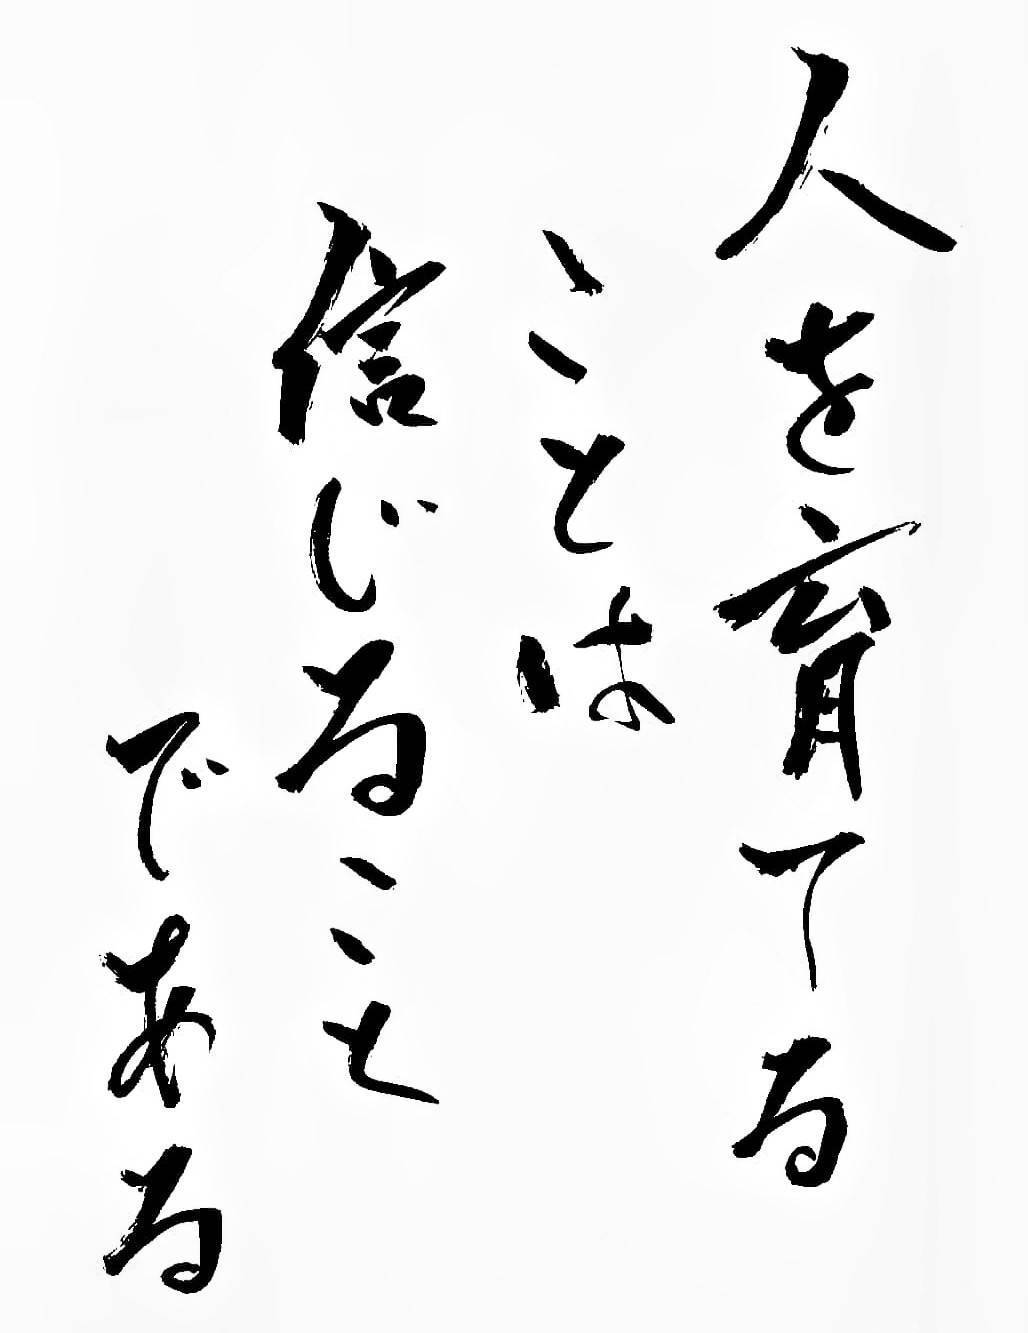 人を育てる
ことは
信じること
である